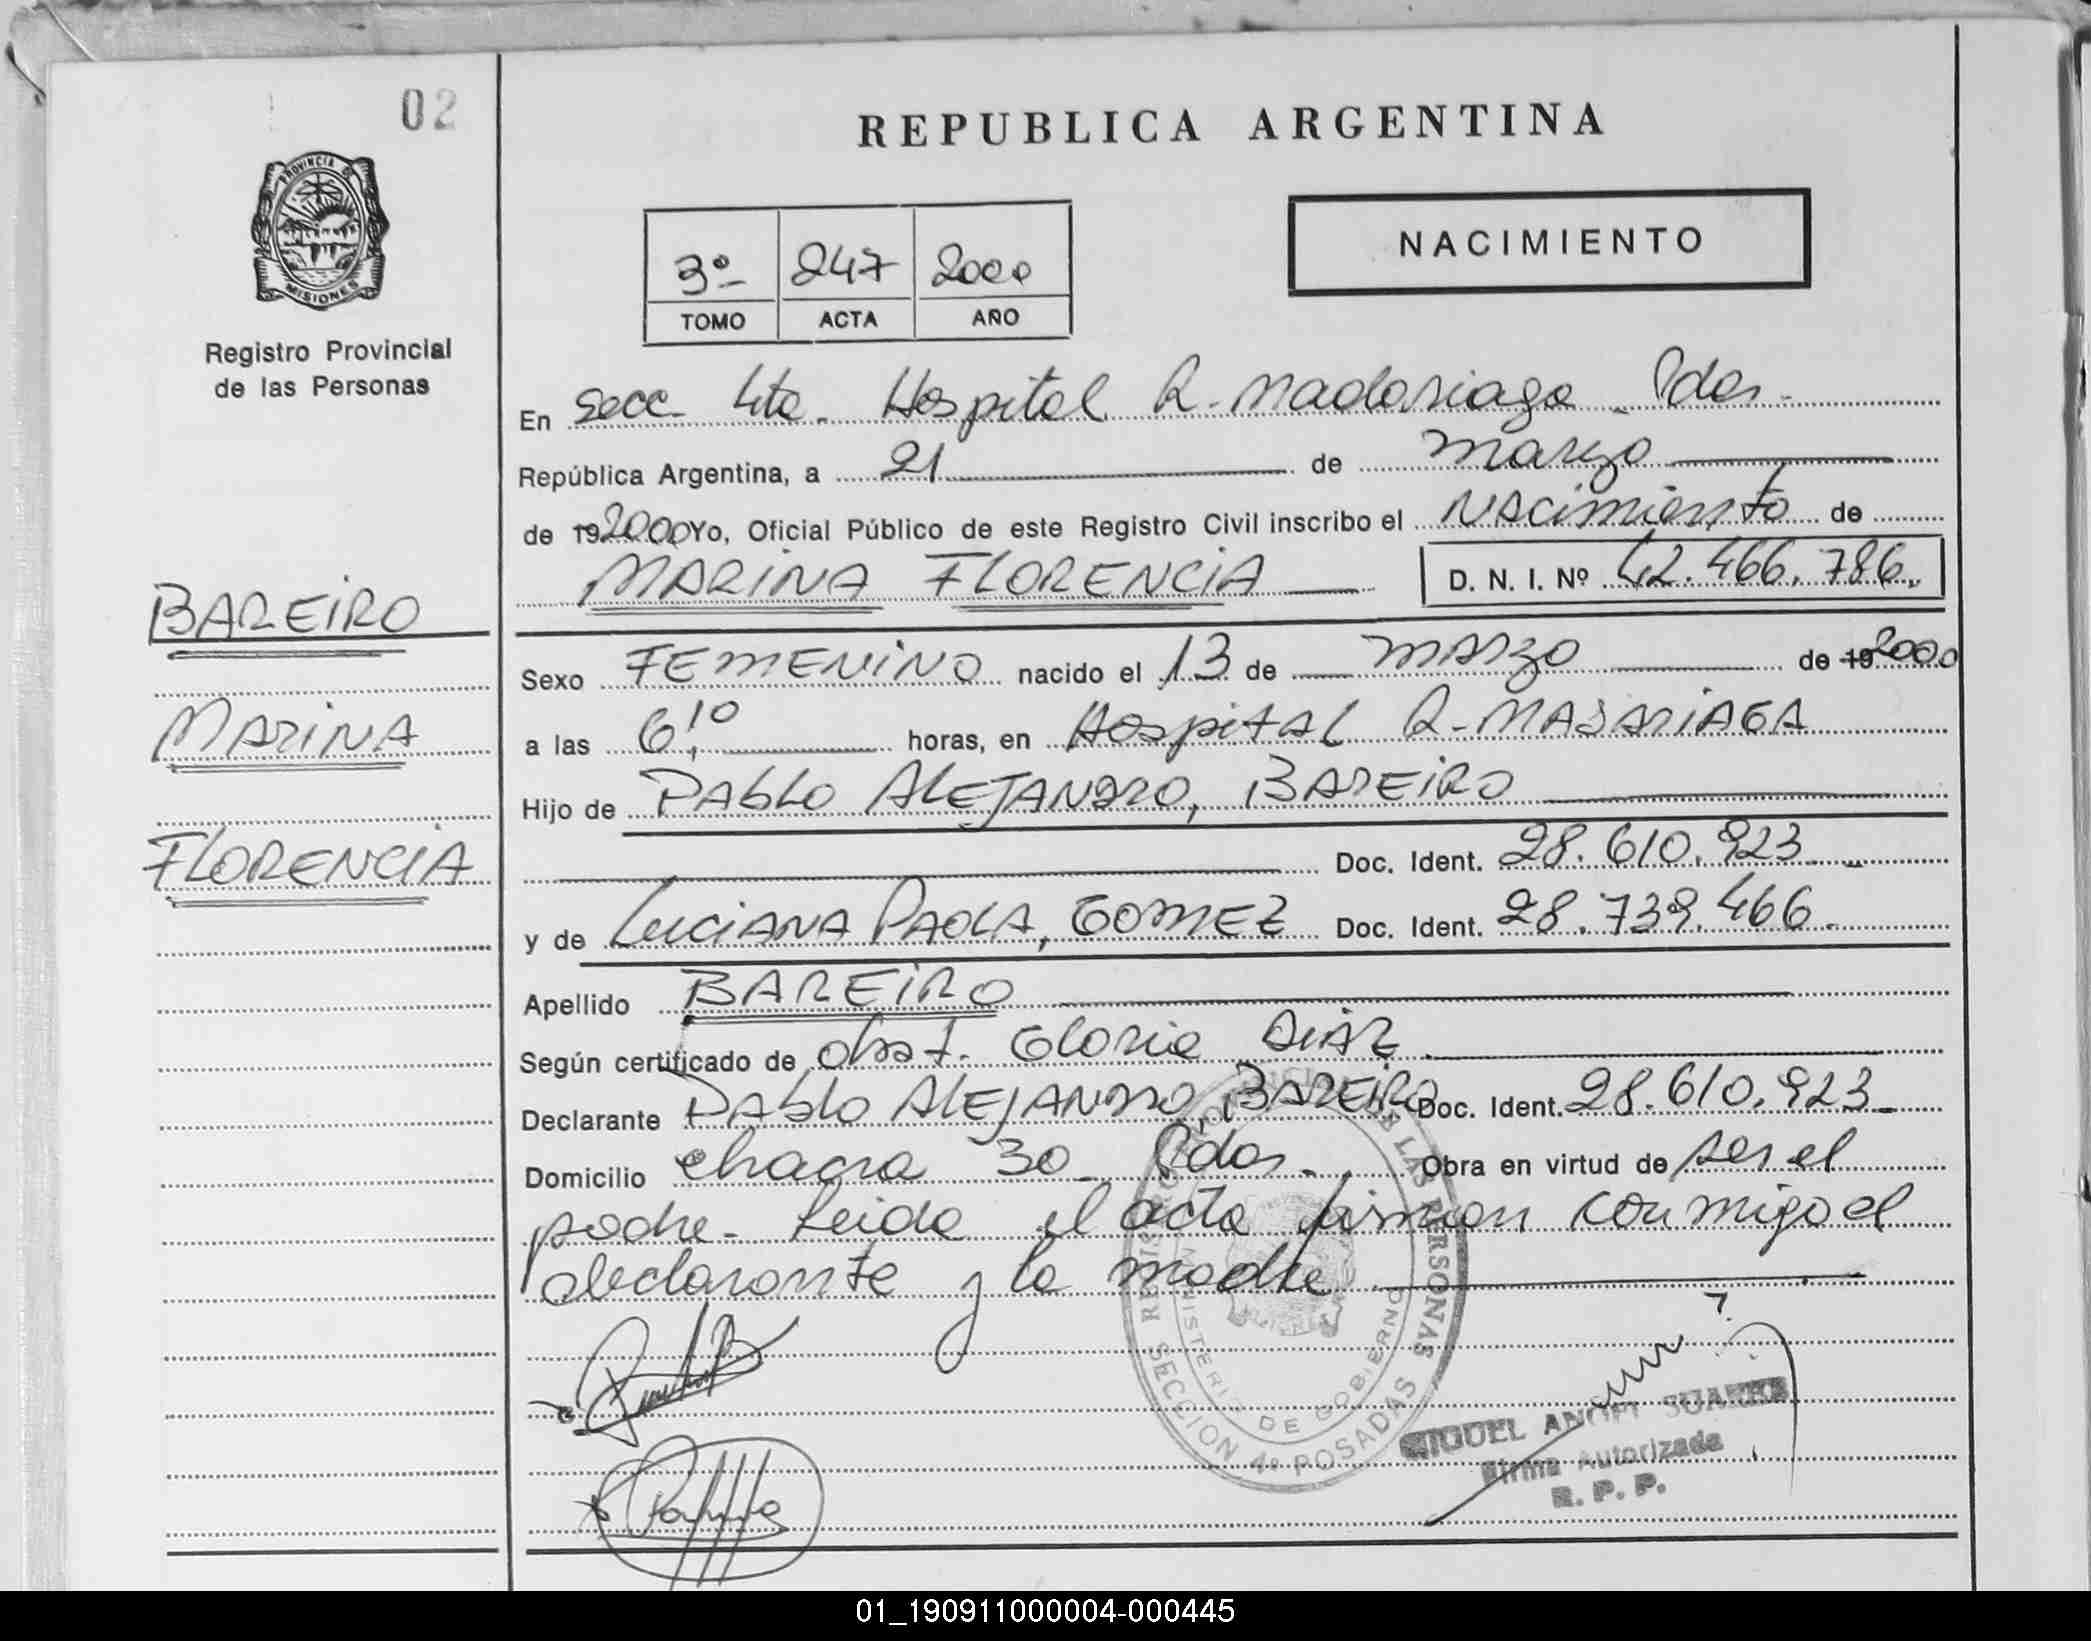 02
REPUBLICA ARGENTINA
PROVINCIA DE
MISIONES
Registro Provincial
de las Personas
3º 247 2000
TOMO ACTA AÑO
NACIMIENTO
En Secc. 4ta. Hospital R. Madariaga - Pdas.
República Argentina, a 21 de marzo
de 192000 Yo, Oficial Público de este Registro Civil inscribo el NACIMIENTO de
MARINA FLORENCIA D. N. I. Nº 42.466.786.
BAREIRO
MARINA
FLORENCIA
Sexo FEMENINO nacido el 13 de MARZO de 19 2000
a las 6,10 horas, en HOSPITAL R. MADARIAGA
Hijo de PABLO ALEJANDRO, BAREIRO
Doc. Ident. 28.610.923
y de LUCIANA PAOLA, GOMEZ Doc. Ident. 28.739.466.
Apellido BAREIRO
Según certificado de obst. Gloria DIAZ
Declarante PABLO ALEJANDRO, BAREIRO Doc. Ident. 28.610.923
Domicilio chacra 30 Pdas. Obra en virtud de ser el
padre. Leida el acta firman conmigo el
declarante y la madre
REGISTRO PROVINCIAL DE LAS PERSONAS
MINISTERIO DE GOBIERNO
SECCION 4º POSADAS
MIGUEL ANGEL SUAREZ
Firma Autorizada
R. P. P.
01_190911000004-000445